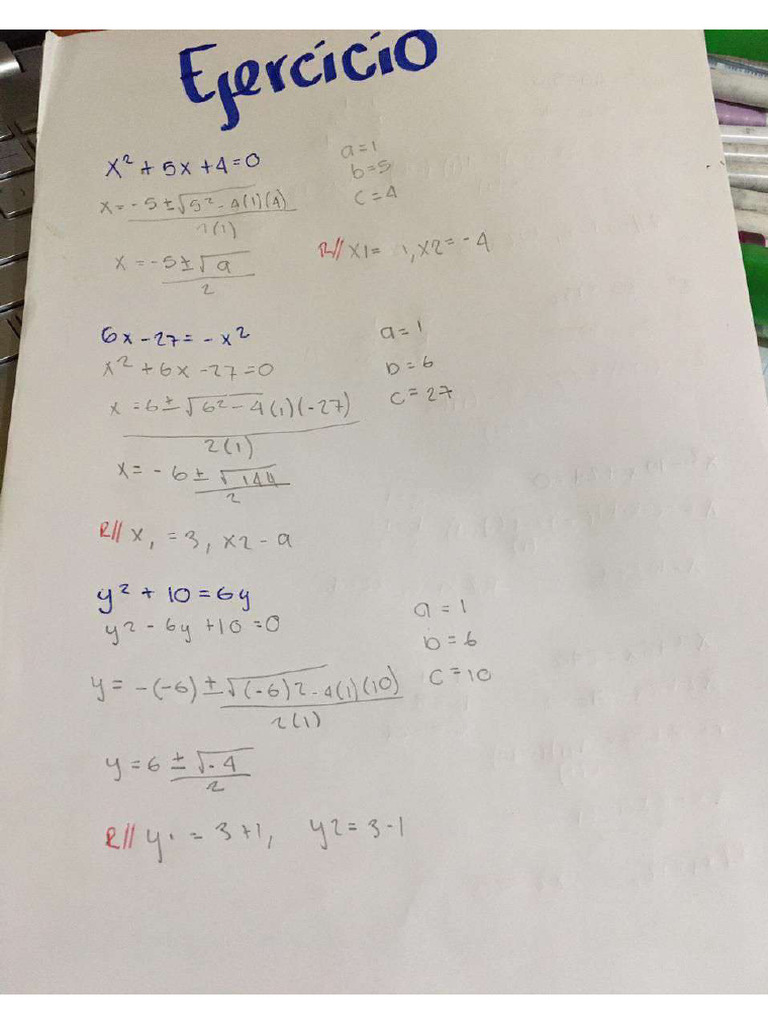 Ejercicio
x² + 5x + 4 = 0
a = 1
b = 5
c = 4
x = -5 ± √5² - 4(1)(4)
2(1)
x = -5 ± √9
2
R// x1 = 1, x2 = -4
6x - 27 = - x²
x² + 6x - 27 = 0
a = 1
b = 6
c = 27
x = 6 ± √6² - 4(1)(-27)
2(1)
x = - 6 ± √144
2
R// x₁ = 3, x2 - 9
y² + 10 = 6y
y2 - 6y + 10 = 0
a = 1
b = 6
c = 10
y = -(-6) ± √(-6)2 - 4(1)(10)
2(1)
y = 6 ± √-4
2
R// y₁ = 3+1, y2 = 3-1